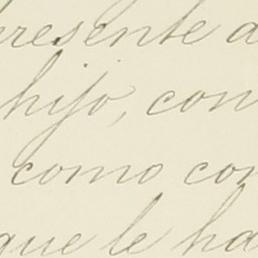 presente a
hijo, con
como con
que le ha